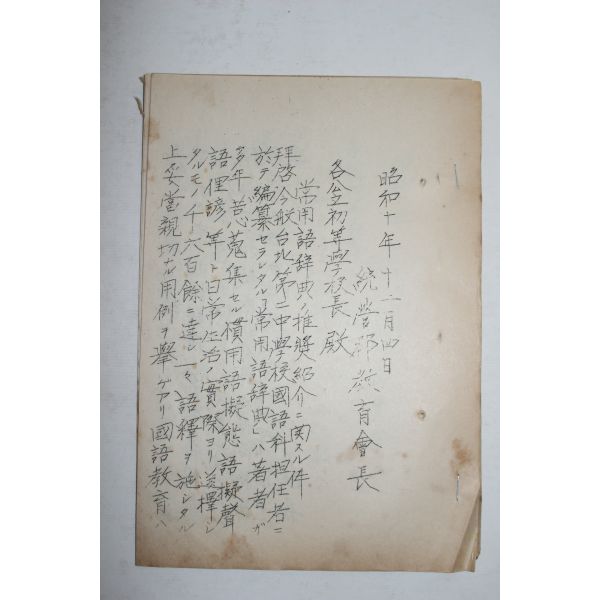 昭和十年十二月四日
統營郡教育會長
各公立初等學校長殿
常用語辭典ノ推奬紹介ニ関スル件
拜啓今般台北第二中學校國語科担任者ニ
於テ編纂セラレタル「常用語辭典」ハ著者ガ
多年苦心蒐集セル慣用語擬態語擬聲
語俚諺等ト日常生活ノ實際ヨリ選擇シ
タルモノ千六百餘ニ達シ一々語釋ヲ施シタル
上妥當親切ナル用例ヲ擧ゲアリ國語教育ハ